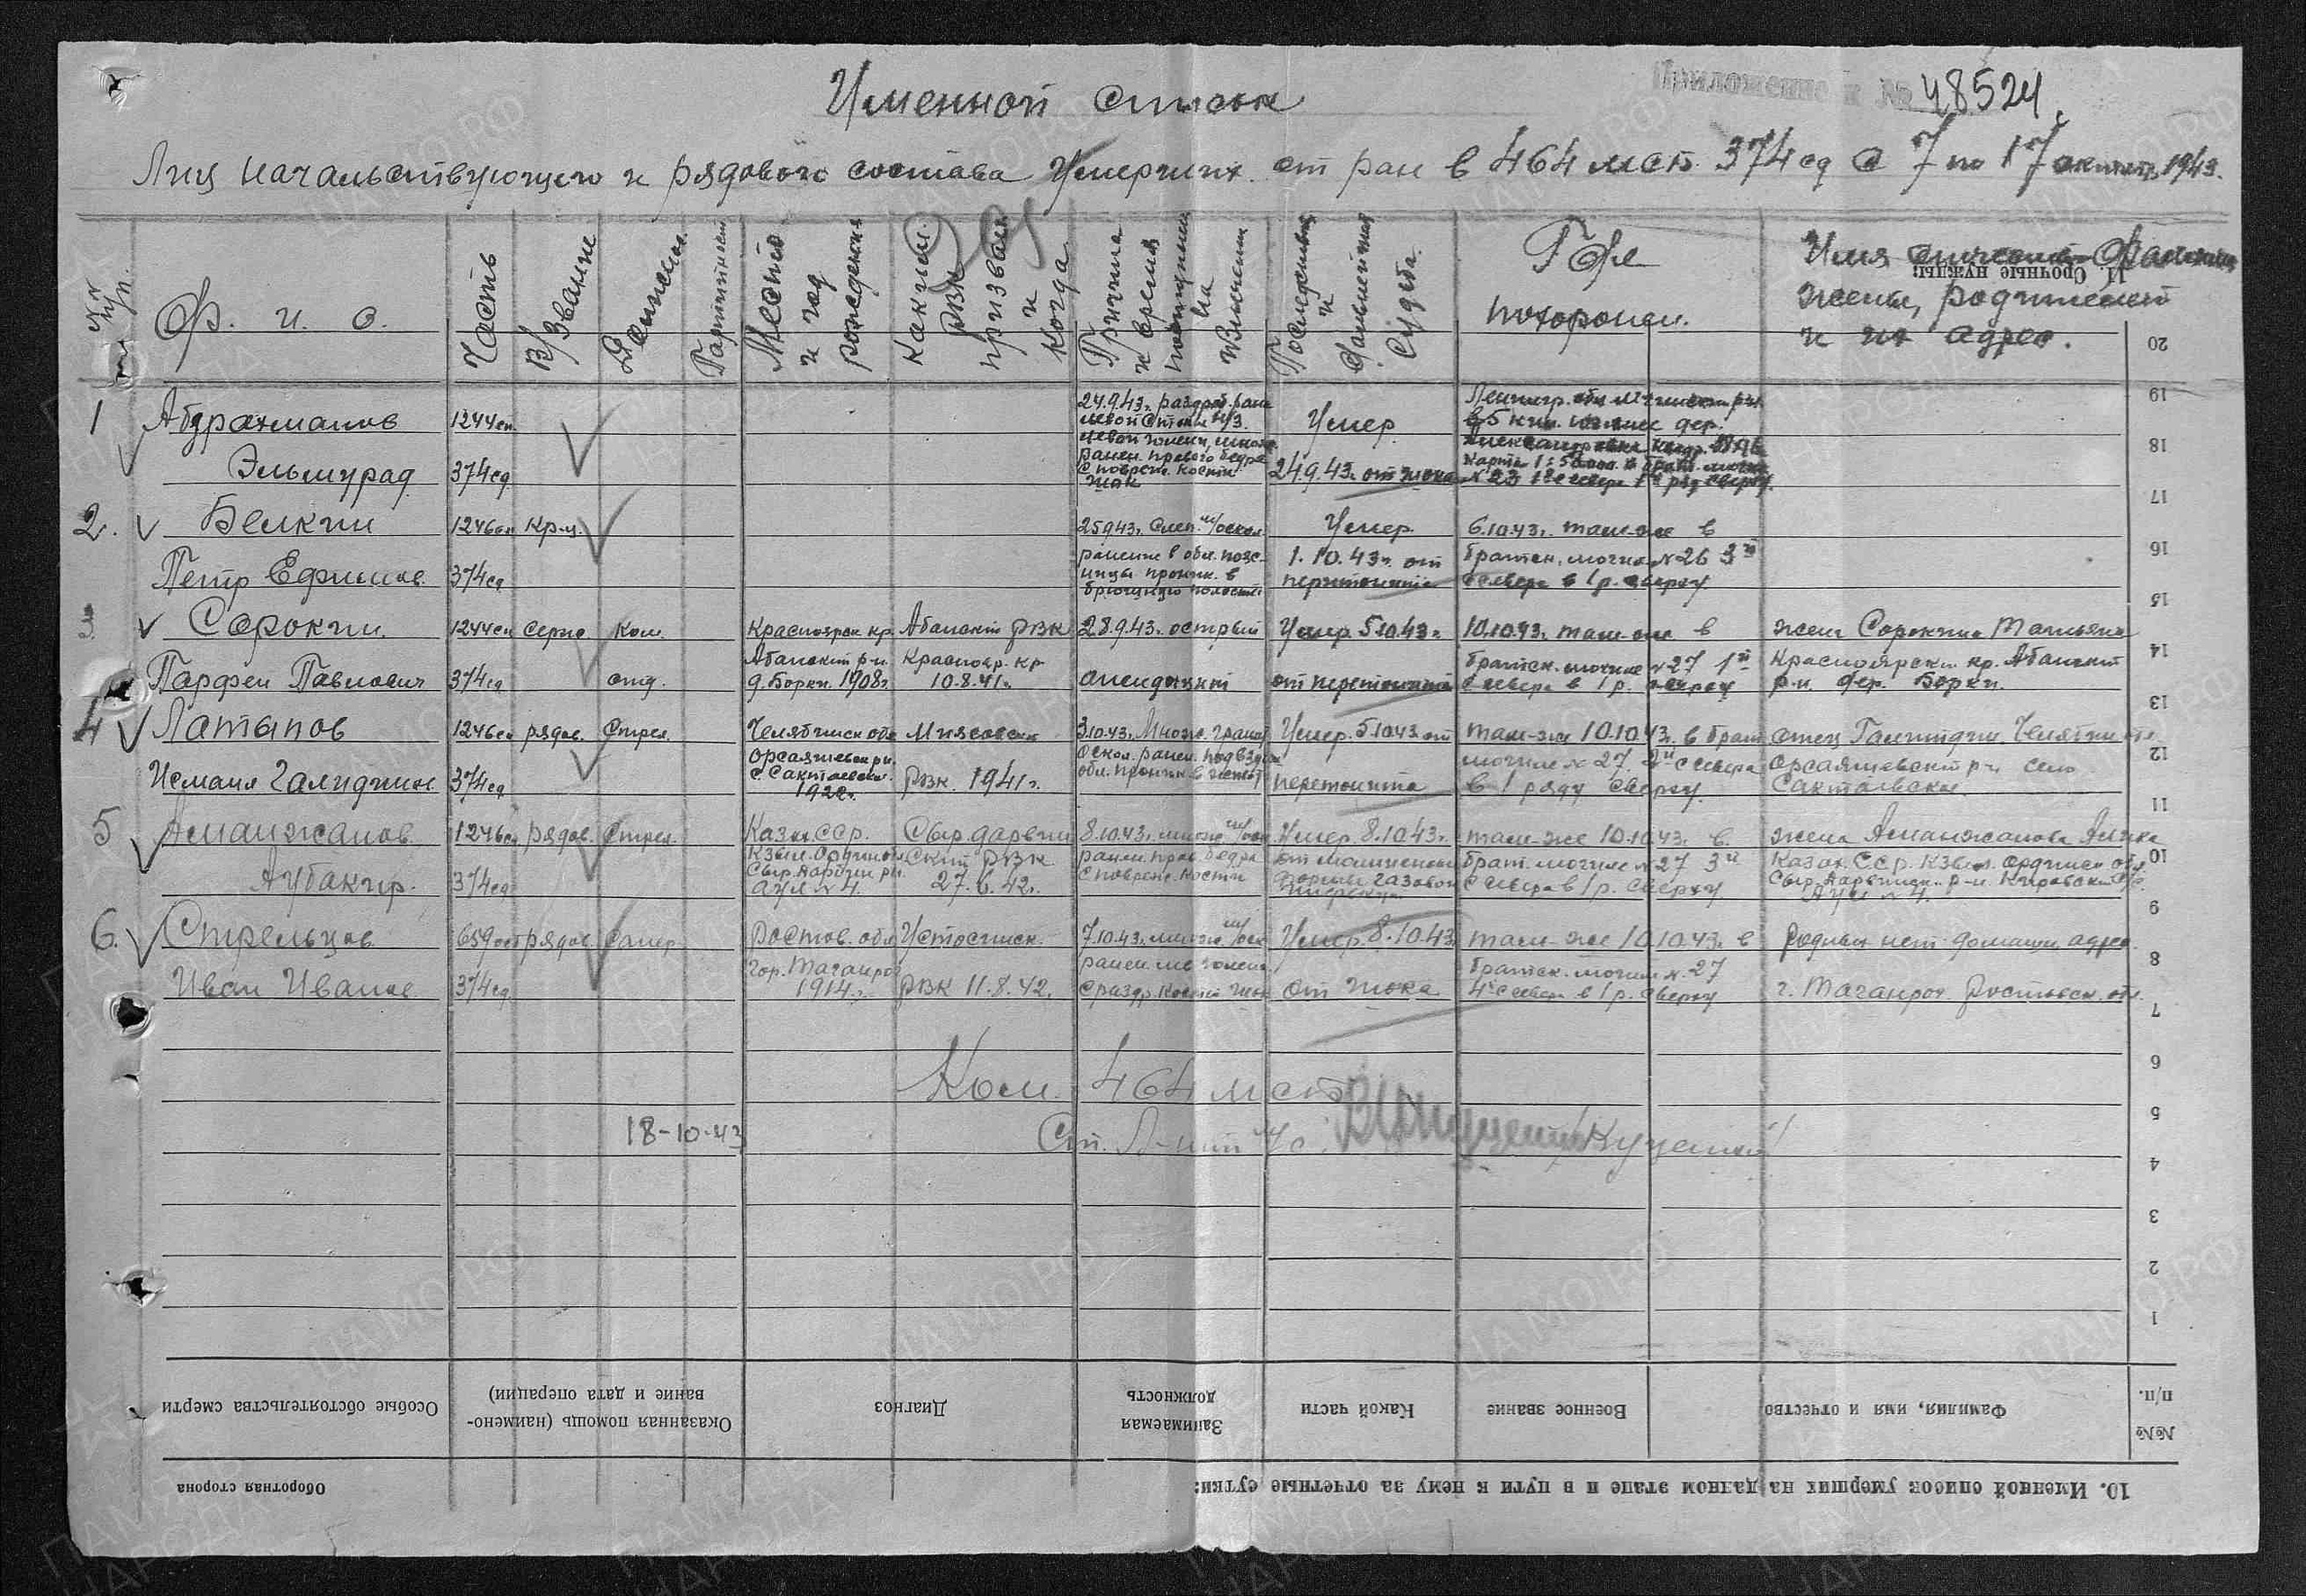 Приложение к № 48524
Именной список
Лиц начальствующего и рядового состава умерших от ран в 464 мсб. 374 сд с 7 по 17 октября 1943.
№№ п/п.
Ф. и. о.
Часть
В/звание
Должность
Партийность
Место и год рождения
Каким РВК призван и когда
Причина и время
Последний и Судьба.
Где похоронен.
Имя отчество Фамилия жены, родителей и их адрес.
11. Срочные нужды:
1 Абдрахманов 1244 сп. 24.9.43г. раздроб. ране Умер Ленингр. обл. Мгинский р-н
левой стопы н/3 в 5 клм. южнее дер.
левой голени, множ.
Эльмурад 374 сд ранен. правого бедра с повреж. кости шок 24.9.43г. от шока Карта 1:50000 в брат. могиле № 23 1й с севера 1й ряд сверху.
2. Белкин 1246 сп кр-ц. 25.9.43г. слеп. о/оскол. Умер 6.10.43г. там-же в
ранение в обл. пояс- 1.10.43г. от братск. могиле № 26 3й
Петр Ефимов. 374 сд ницы проник. в брюшную полость перитонита с севера в 1 р. сверху
Сорокин 1244 сп серж. Ком. Красноярск кр. Абанский РВК 28.9.43г. острый Умер 5.10.43г. 10.10.43г. там-же в жена Сорокина Татьяна
Абанский р-н Краснояр. кр братск. могиле № 27 1й Красноярский кр. Абанский
Парфен Павлович 374 сд отд. д. Борки 1908г 10.8.41г. апендицит от перетонита с севера в 1 р. сверху р-н. дер. Борки.
4 Латыпов 1246 сп рядов. Стрел. Челябинск обл Миясовск 3.10.43г. Множ. Умер 5.10.43 от там-же 10.10.43г. в брат отец Челябин
Оскол. ранен. подвздош могиле № 27 2й с севера р-н село
Исмаил Галиджин 374 сд 1922г. РВК. 1941г. обл. проник. в живот перетонита в 1 ряду сверху
5 Аманжанов. 1246 сп рядов. Стрел. Казах ССР. Сыр. дарьин 8.10.43г. множ Умер 8.10.43г. там-же 10.10.43г. в. жена Аманжанова
Кзыл. Ординск ский РВК ранен. прав. бедра брат могиле № 27 3й Казах. ССР. Кзыл. Ординск обл
Аубакир. 374 сд аул № 4. 27.6.42г. с повреж. кости формы газовой с севера в 1 р. сверху. р-н. Кировский с/с. Аул № 4.
6. Стрельцов 659 рядов. Сапер Ростов. обл 7.10.43г. множ Умер 8.10.43 там-же 10.10.43г. в родных нет домашн. адрес
гор. Таганрог братск. могиле № 27
Иван Иванов 374 сд 1914г. РВК 11.8.42. с раздр. кости шок от шока 4й с севера в 1 р. сверху г. Таганрог Ростовск. обл.
Ком. 464 мсб
18-10-43 Ст. Л-нт м/с. /Куценко/
20
19
18
17
16
15
14
13
12
11
10
9
8
7
6
5
4
3
2
1
№№ п/п.
Фамилия, имя и отчество
Военное звание
Какой части
Занимаемая должность
Диагноз
Оказанная помощь (наимено-
вание и дата операции)
Особые обстоятельства смерти
10. Именной список умерших на данном этапе и в пути к нему за отчетные сутки:
Оборотная сторона
ПАМЯТЬ НАРОДА
ЦАМО.РФ